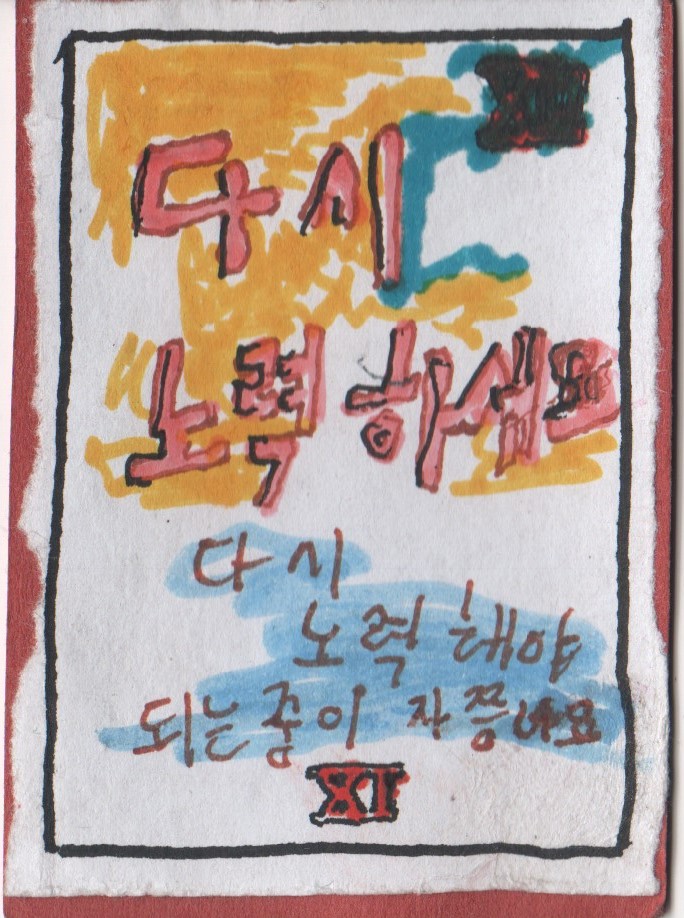 다시
노력 하세요
다시
노력 해야
되는 중이 자쯩나요
XI